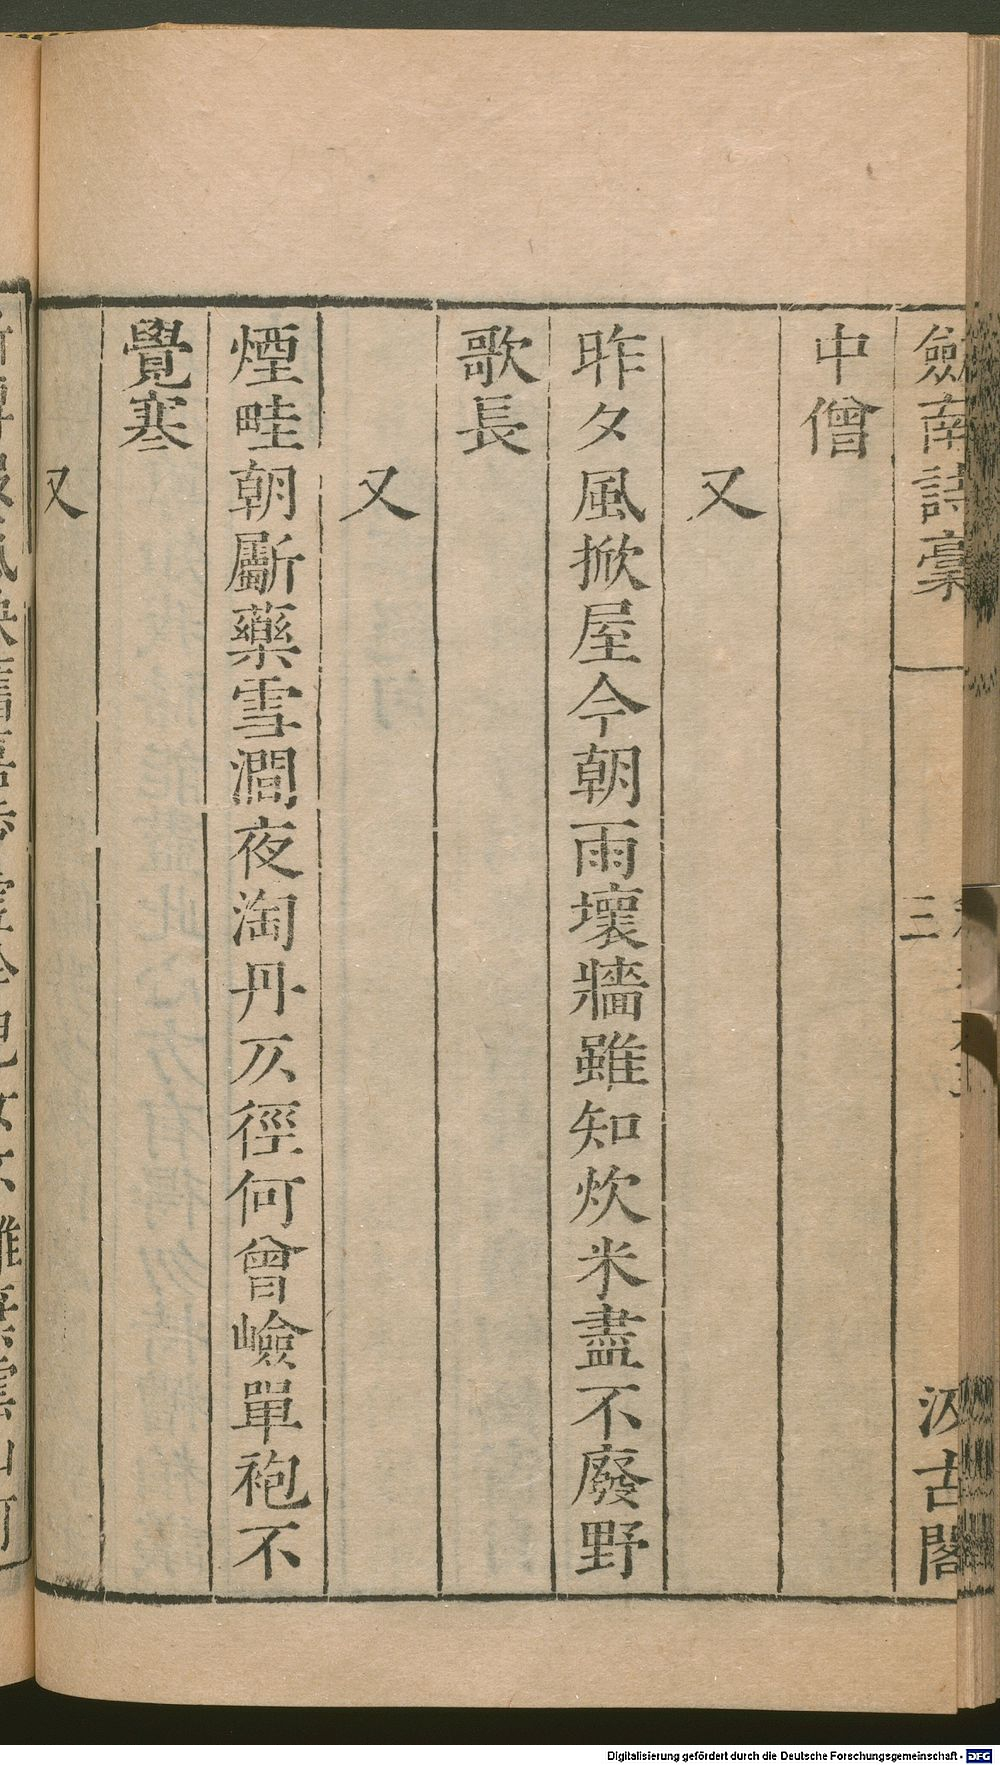 劒南詩稾
三
汲古閣
中僧
又
昨夕風掀屋今朝雨壞牆雖知炊米盡不廢野
歌長
又
煙畦朝斸藥雪澗夜淘丹仄徑何曾嶮單袍不
覺寒
又
Digitalisierung gefördert durch die Deutsche Forschungsgemeinschaft - DFG